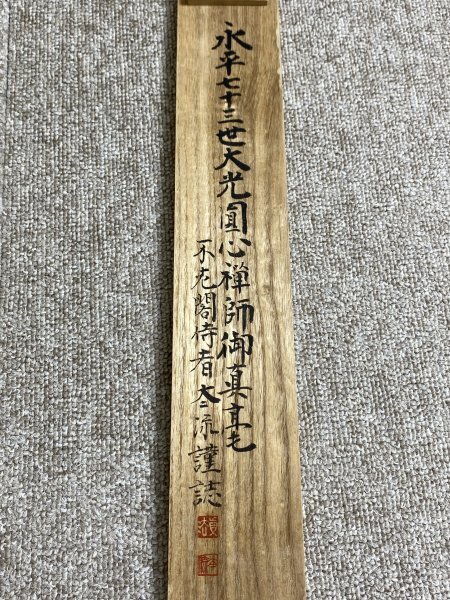 永平七十三世大光圓心禅師御真毫
不老閣侍者大流謹誌